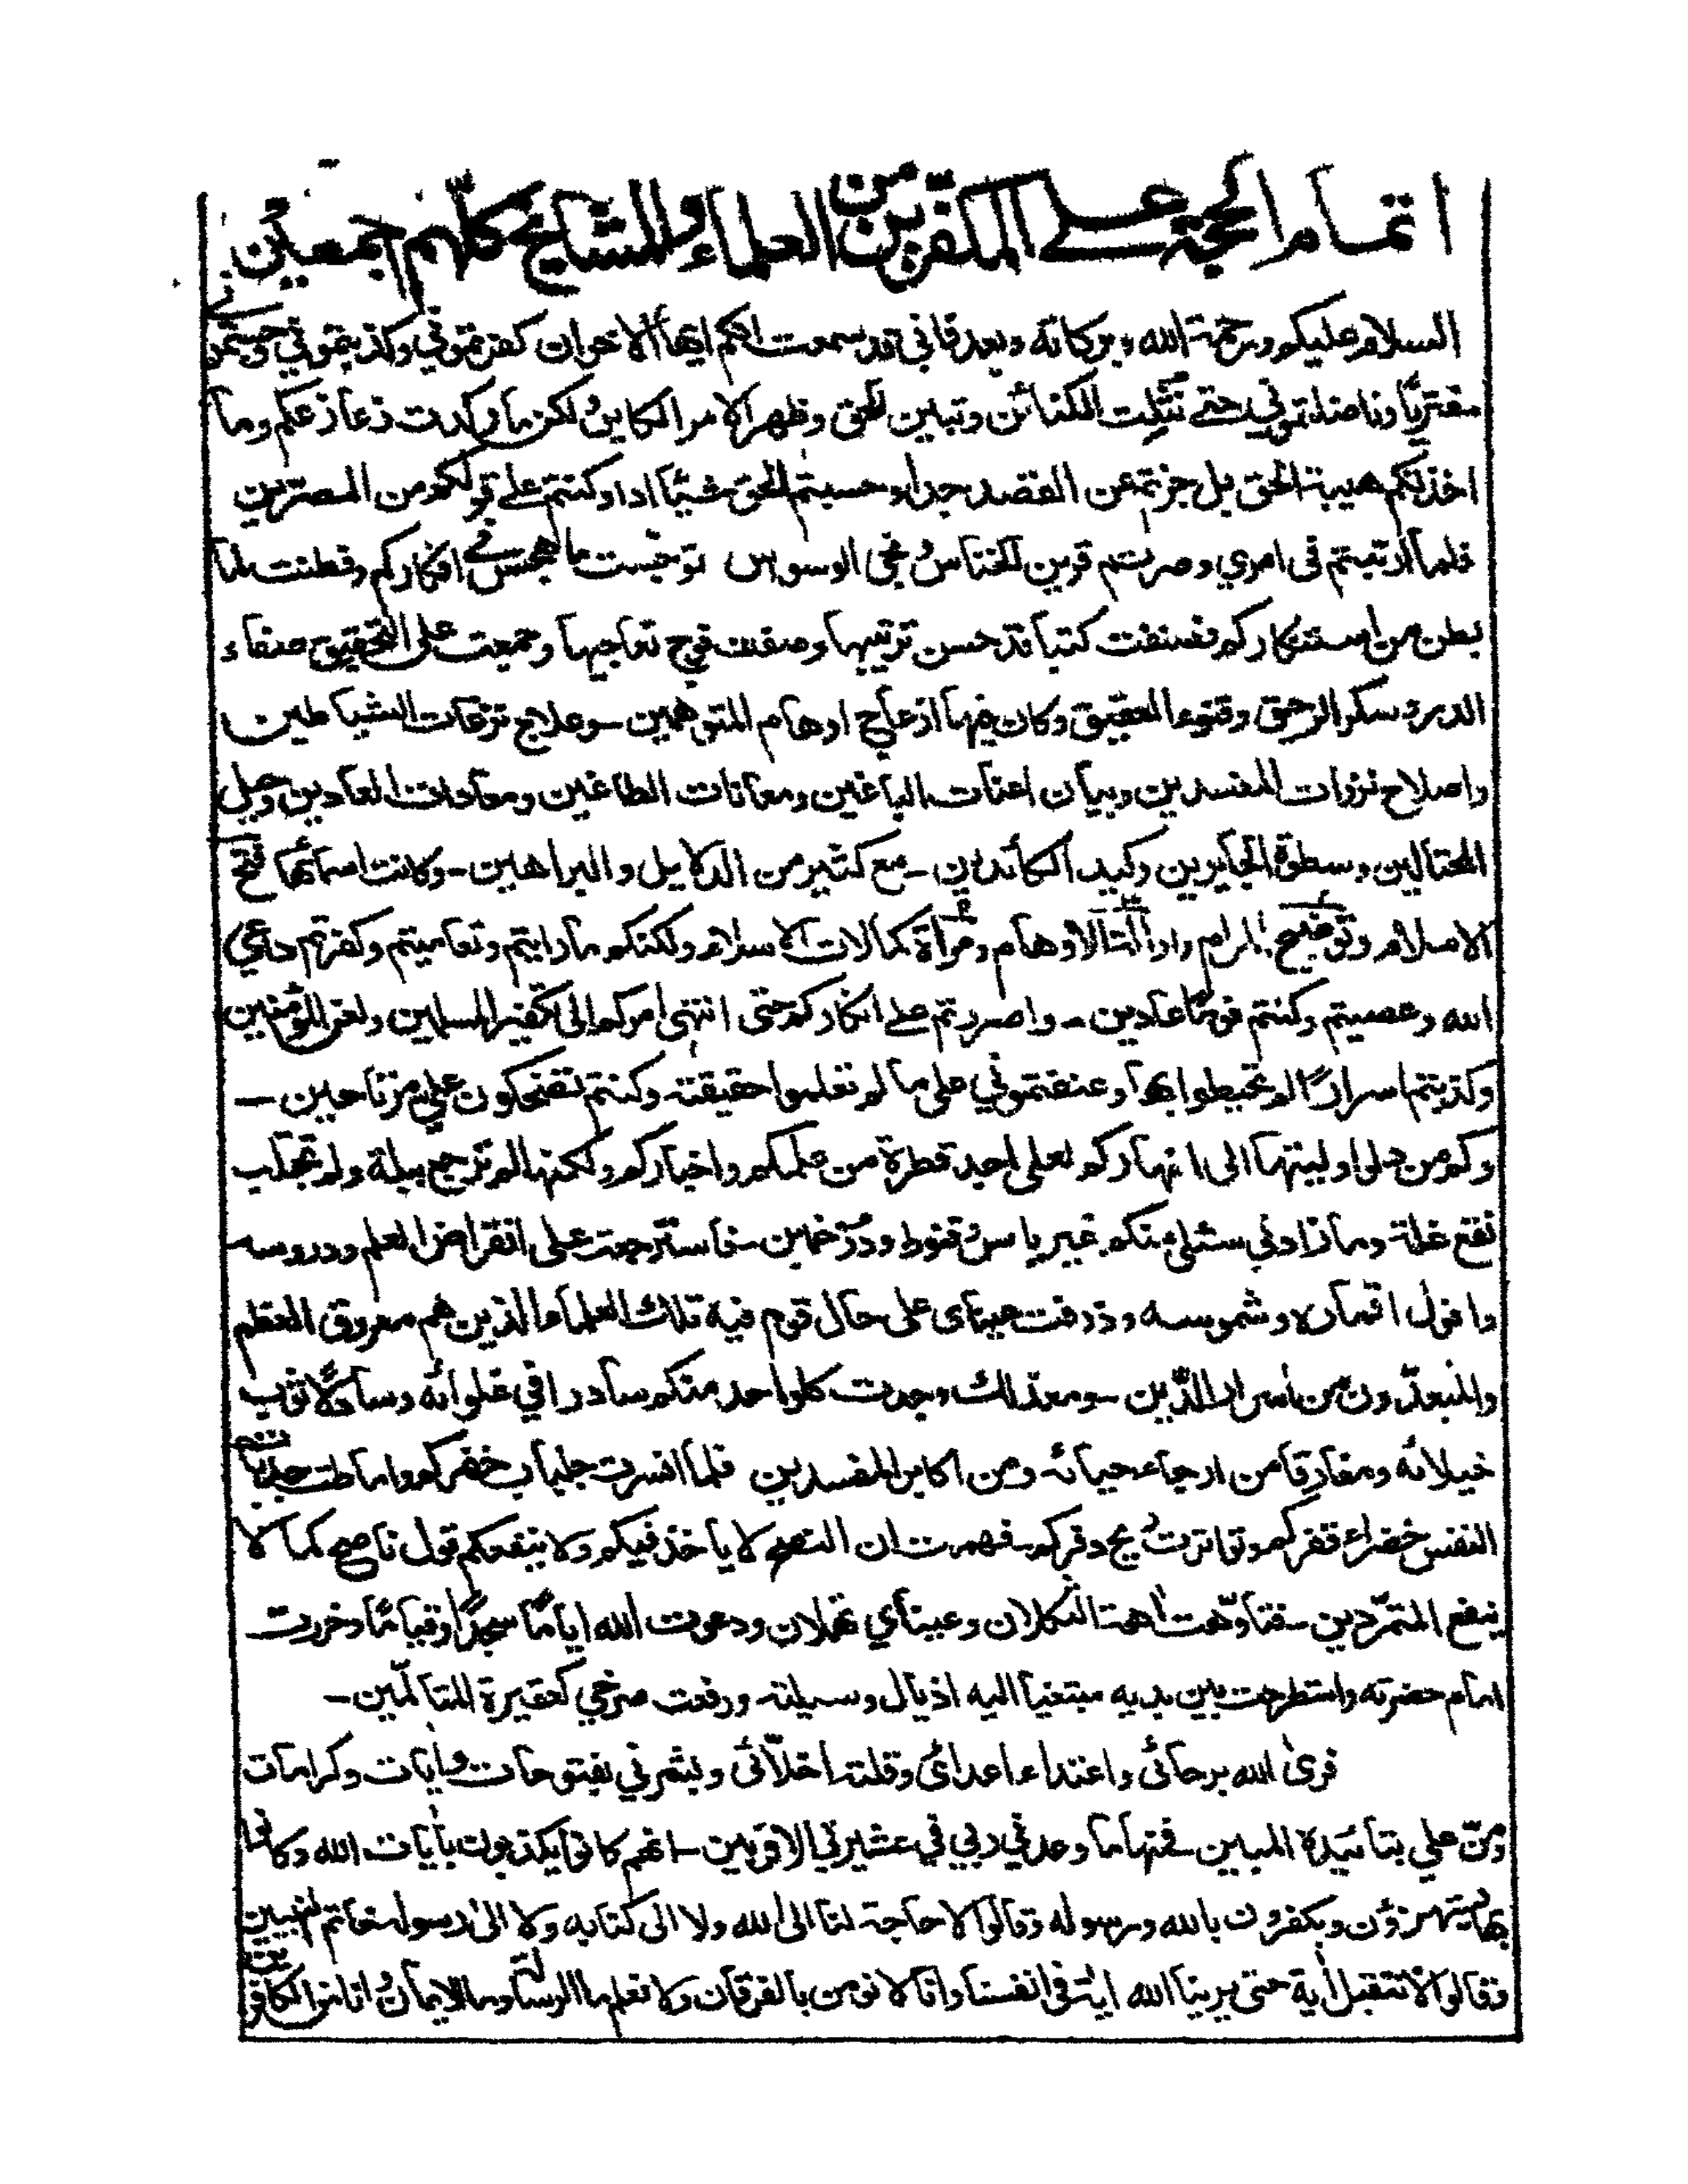 اتمام الحجة على المكفّرين من العلماء والمشايخ كلّهم اجمعين
السلام عليكم ورحمة الله وبركاته وبعد فانى قد سمعت انكم ايها الاخوان كفرتمونى وكذبتمونى وحسبتمونى
مفتريًا وناضلتمونى حتى نثلت الكنائن وتبين الحق وظهر الامر الكاين ولكن ما ركدت زعازعكم وما
اخذتكم هيبة الحق بل جزتم عن القصد جدا وحسبتم الحق شيئا ادا وكنتم على قولكم من المصرّين
فلما ارتبتم فى امري وصرتم قرين الخناس نجى الوسواس توجّست ما هجس فى افكاركم وفطنت لما
بطن من استنكاركم فصنفت كتبا قد حسن ترتيبها وصففت فوج تعاجيبها وجمعت على التحقيق صفاء
الدر وسكر الرحيق وقنوء العقيق وكان فيها ازعاج اوهام المتوهمين - وعلاج نزغات الشياطين
واصلاح نزوات المفسدين وبيان اعنات الباغين ومعانات الطاغين ومعادات العادين وحيل
المحتالين وسطوة الجايرين وكيد الكائدين - مع كثير من الدلايل والبراهين - وكانت اسمائها فتح
الاسلام وتوضيح المرام وازالة الاوهام ومرآة كمالات الاسلام ولكنكم ما رايتم وتعاميتم وكفرتم داعي
الله وعصيتم وكنتم قومًا عادين - واصررتم على انكاركم حتى انتهى امركم الى تكفير المسلمين ولعن المؤمنين
وكذبتم اسرارًا لم تحيطوا بها وعنفتمونى على ما لم تعلموا حقيقته وكنتم تضحكون علىّ مرتاحين -
وكم من دلو ادليتها الى انهاركم لعلى اجد قطرة من علمكم واخباركم ولكنها لم ترجع ببلة ولم تجلب
نقع غلة وما زادنى سئلى منكم غير ياس وقنوط ودرّ خمين - فاسترجعت على انقراض العلم ودروسه
وافول اقماره وشموسه وذرفت عيناى على حال قوم فيه تلك العلماء الذين هم معروق العظم
والمبعدّون من اسرار الدّين - ومع ذلك وجدت كلواحد منكم سادرا فى غلوائه وسادلًا ثوب
خيلائه ومفارقا من ارجاء حيائه ومن اكابر المفسدين فلما انسرت جلباب خفركم واماطت جدبات
النفس خضراء قفركم وتواترت ريح دفركم - فهمت ان النصح لا ياخذ فيكم ولا ينفعكم قول ناصح كما لا
ينفع المتمرّدين - فتاوّهت اهة الثكلان وعيناي تهملان ودعوت الله ايامًا سجّدًا وقيامًا وخررت
امام حضرته واستطرحت بين يديه مبتغيا اليه اذيال وسيلته ورفعت صرخي كعقيرة المتالّمين -
فرى الله برحائى واعتداء اعدائى وقلة اخلّائى وبشرنى بفتوحات وايات وكرامات
ومنّ علي بتائيده المبين - فمنها ما وعدني ربي في عشيرتي الاقربين - انهم كانوا يكذبون بايات الله وكانوا
بها يستهزؤن ويكفرون بالله ورسوله وقالوا لا حاجة لنا الى الله ولا الى كتابه ولا الى رسوله خاتم النبيين
وقالوا لا نتقبل اٰية حتى يرينا الله اية فى انفسنا وانا لا نؤمن بالفرقان ولا نعلم ما الرسالة وما الايمان وانا من الكافرين